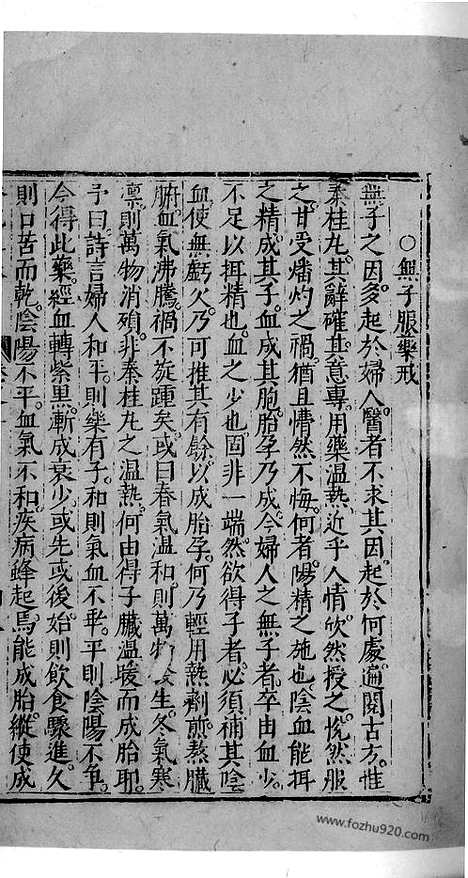 ○無子服藥戒
無子之因。多起於婦人。醫者不求其因。起於何處。遍閱古方。惟
秦桂丸。其辭確。其意專。用藥温熱。近乎人情。欣然授之。恍然服
之。甘受燔灼之禍。猶且懵然不悔。何者。陽精之施也。陰血能攝
之。精成其子。血成其胞。胎孕乃成。今婦人之無子者。卒由血少。
不足以攝精也。血之少也。固非一端。然欲得子者。必須補其陰
血。使無虧久。乃可推其有餘。以成胎孕。何乃輕用熱劑。煎熬臟
腑。血氣沸騰。禍不旋踵矣。或曰。春氣温和。則萬物生。冬氣寒
凛。則萬物消殞。非秦桂丸之温熱。何由得子臟温煖而成胎耶。
予曰。詩言婦人和平。則樂有子。和則氣血不乖。平則陰陽不爭。
今得此藥。經血轉紫黑。漸成衰少。或先或後。始則飲食驟進。久
則口苦而乾。陰陽不平。血氣不和。疾病蜂起。焉能成胎。縱使成
www.fozhu920.com